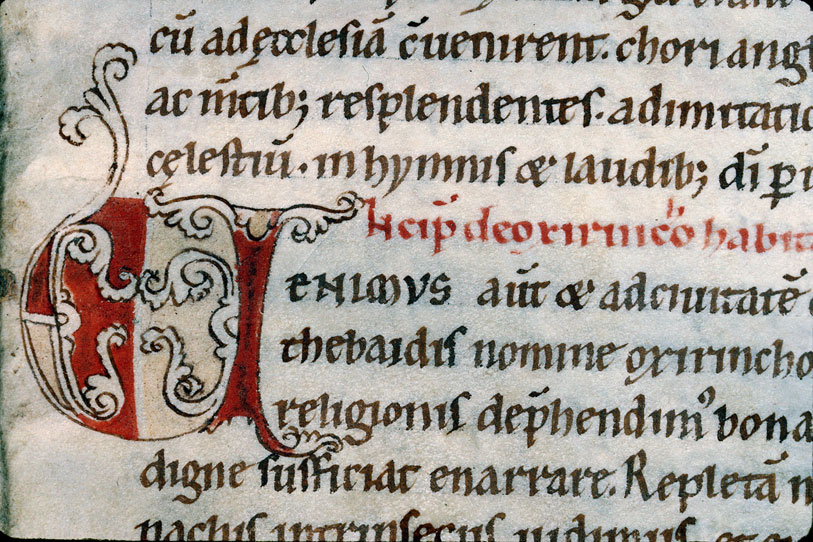 cū ad ęcclesiā c̄uenirent. chori angl
ac m̄tib; resplendentes. ad imitatio
cęlestiū. in hymnis & laudib; dī p
Incip̄ de oxirincho habit
VENIMVS aūt & ad ciuitatē
thebaidis nomine oxirincho
religionis dep̄hendim᾿ bona
digne sufficiat enarrare. Repletā
nachis intrinsecus uidimus